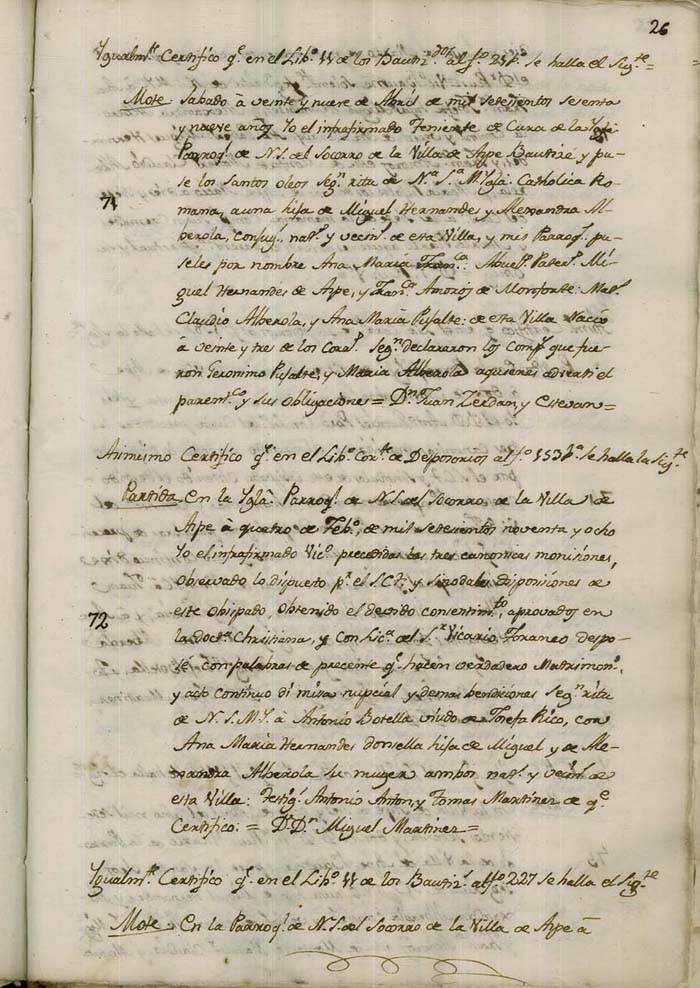 26
Ygualmte Certifico qe en el Libo 11 de los Bautizdos al fo 217 se halla el Sigte =
Mote Sabado à veinte y nueve de Abril de mil setesientos sesenta
y nueve años Yo el infrafirmado Teniente de Cura de la Ygla
Parroql de N.S. del Socorro de la Villa de Aspe Bautizé y pu=
se los Santos oleos Segn ritu de Na Sa M. Ygla Catholica Ro=
71
mana, a una hija de Miguel Hernandes y Alexandra Al=
berola, Conjugs nats y vecins de esta Villa, y mis Parroqs pu=
seles por nombre Ana Maria Franca Abuels Paters Mi=
guel Hernandes de Aspe, y Franca Amoròs de Monforte: Mats
Claudio Alberola, y Ana Maria Pujalte: de esta Villa Naciò
à veinte y tres de los Corrs Segn declararon los Comps que fue=
ron Geronimo Pujalte, y Maria Alberola aquienes adverti el
parentco y sus obligaciones = Dn Juan Zerdan, y Estevan =
Asimismo Certifico qe en el Libo Corte de Desposorios al fo 153 Ba se halla la Sigte
Partida En la Ygla Parroql de N.S. del Socorro de la Villa de
Aspe à quatro de Febo de mil setesientos noventa y ocho
Yo el infrafirmado Vico precedidas las tres canonicas moniciones,
observado lo dispuesto pr el S.C.t. y sinodales disposiciones de
72
este obispado, obtenido el devido consentimto, aprovados en
la Docta Christiana, y con Lica del Sr Vicario Foraneo Despo=
sè con palabras de precente qe hacen verdadero Matrimono
y acto continuo di misa nupcial y demas bendiciones Segn ritu
de N.S.M.Y. à Antonio Botella viudo de Josefa Rico, con
Ana Maria Hernandes donsella hija de Miguel y de Ale=
xandra Alberola su muger ambos nats y vecins de
esta Villa: Testigs Antonio Anton, y Tomas Martinez de qe
Certifico: = Dr Dn Miguel Martinez =
Ygualmte Certifico qe en el Libo 11 de los Bautizs al fo 227 se halla el Sigte
Mote En la Parroql de N.S. del Socorro de la Villa de Aspe à